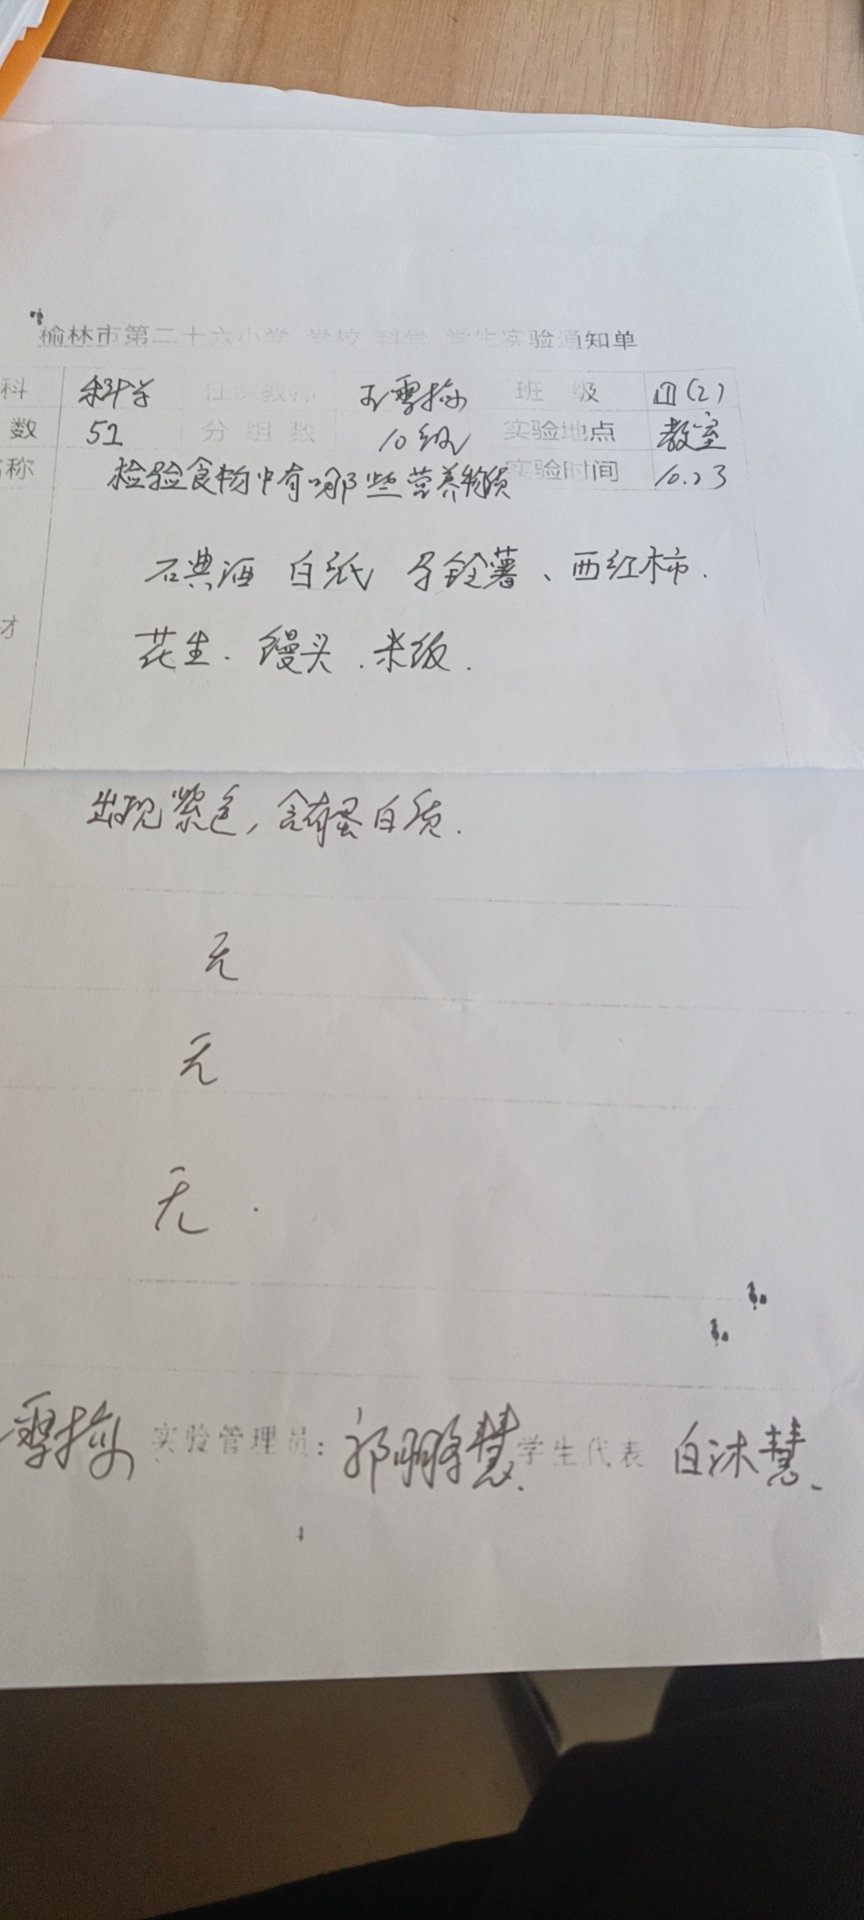 榆林市第二十六小学 学校 科学 学生实验通知单
科 科学 任课教师 王雪梅 班 级 四(2)
数 51 分组数 10组 实验地点 教室
称 检验食物中有哪些营养物质 实验时间 10.23
材
石典酒 白纸 马铃薯、西红柿.
花生. 馒头.米饭.
出现紫色,含有蛋白质.
无
无
无.
雪梅 实验管理员: 郭鹏慧 学生代表 白沐慧